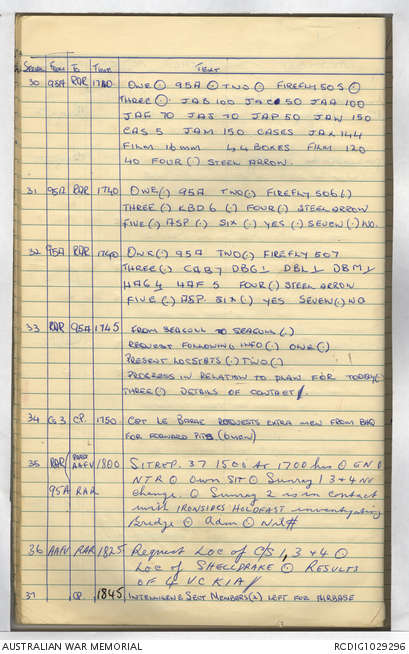 SERIAL FROM TO TIME TEXT
30 95A RAR 1740 ONE (.) 95A (.) TWO (.) FIREFLY 505 (.)
THREE (.) JAB 100 JAC 50 JAA 100
JAF 70 JAS 70 JAP 50 JAW 150
CAS 5 JAM 150 CASES JAX 144
FILM 16mm 44 BOXES FILM 120
40 FOUR (.) STEEL ARROW.
31 95A RAR 1740 ONE (.) 95A TWO (.) FIREFLY 506 (.)
THREE (.) KBD 6 (.) FOUR (.) STEEL ARROW
FIVE (.) ASP (.) SIX (.) YES (.) SEVEN (.) NO.
32 95A RAR 1740 ONE (.) 95A TWO (.) FIREFLY 507
THREE (.) CAB 7 DBG 1 DBL 1 DBM 1
HAG 4 HAF 5 FOUR (.) STEEL ARROW
FIVE (.) ASP SIX (.) YES SEVEN (.) NO
33 RAR 95A 1745 FROM SEAGULL TO SEAGULL (.)
REQUEST FOLLOWING INFO (.) ONE (.)
PRESENT LOCSTATS (.) TWO (.)
PROGRESS IN RELATION TO PLAN FOR TODAY (.)
THREE (.) DETAILS OF CONTACT /.
34 G3 CP. 1750 CPT LE BARAC REQUESTS EXTRA MEN FROM BHQ
FOR FORWARD PITS
35 RAR/ AAFV 1800 SITREP. 37 1500 to 1700 hrs (.) EN (.)
95A RAR NTR (.) Own SIT (.) Sunray 1 3 & 4 no
change. (.) Sunray 2 is in contact
with IRONSIDES HOLDFAST investigating
Bridge (.) Adm (.) Nil #
36 AAFV RAR 1825 Request Loc of C/S 1, 3 & 4 (.)
Loc of SHELLDRAKE (.) RESULTS
OF 4 VC KIA //
37 CP. 1845 INTELLIGENCE SECT MEMBERS (2) LEFT FOR AIRBASE
AUSTRALIAN WAR MEMORIAL RCDIG1029296